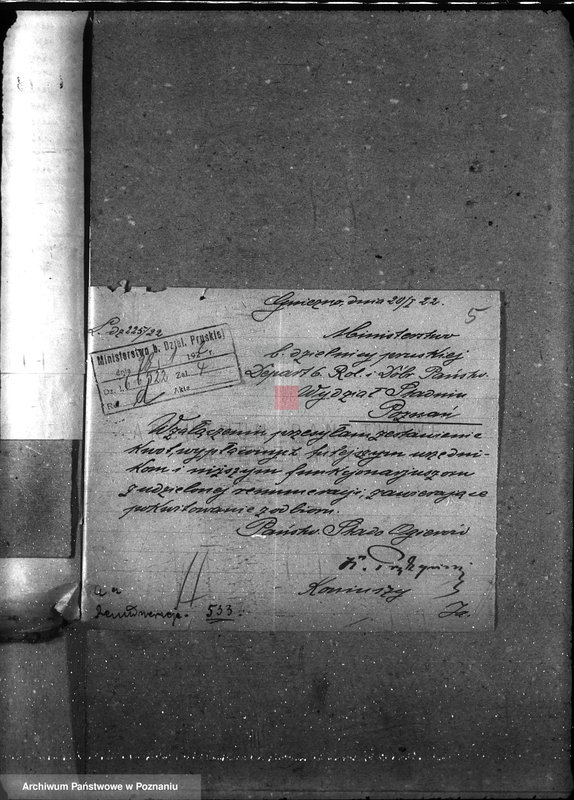 Gniezno, dnia 20/I 22.
5
L. dz 225/22
Ministerstwo b. Dzieln. Pruskiej
dnia 192 r.
Dz. L. 6622 Zał. 4
Ref. Akta
Ministerstwo
b. dzielnicy pruskiej
Depart b. Rol. i Dóbr Państw.
Wydział Stadnin
Poznań
W załączeniu przesyłam zestawienie
kwot wypłaconych tutejszym urzędni-
kom i niższym funkcjonarjuszom
z udzielnej remuneracji, zawierające
pokwitowanie z odbioru.
Państw. Stado Ogierów
Koniuszy
533.
Archiwum Państwowe w Poznaniu